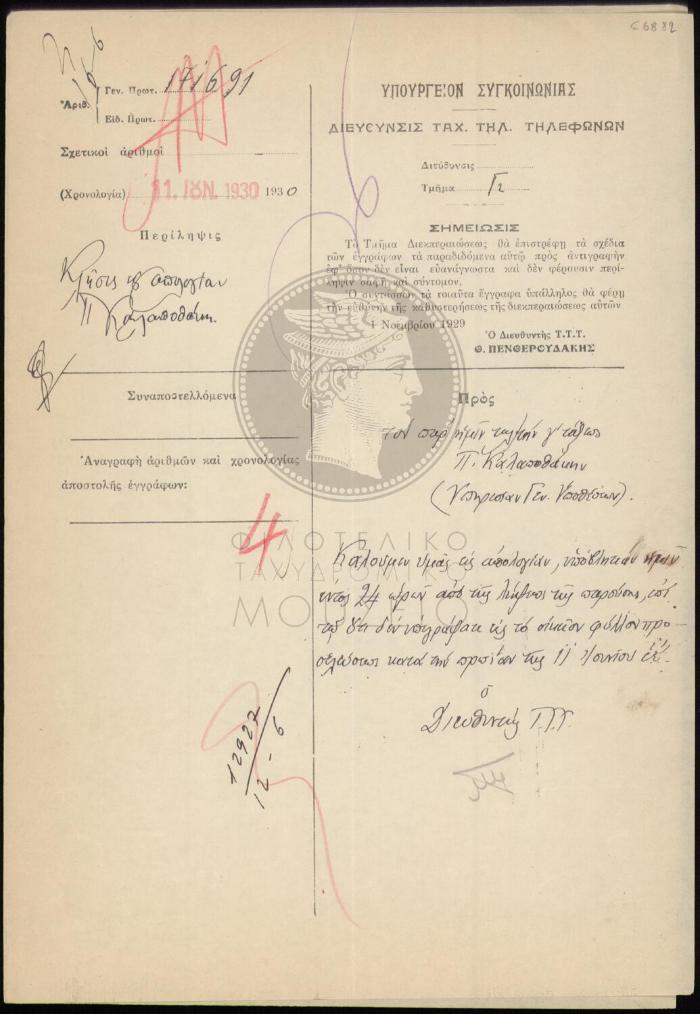 C6882
16-6
Ἀριθ.
Γεν. Πρωτ. 171691
Εἰδ. Πρωτ.
Σχετικοὶ ἀριθμοὶ
(Χρονολογία) 11. ΙΟΥΝ. 1930 1930
Περίληψις
Κλῆσις εἰς ἀπολογίαν
Π. Καλαποθάκη.
Συναποστελλόμενα
Ἀναγραφὴ ἀριθμῶν καὶ χρονολογίας
ἀποστολῆς ἐγγράφων:
4
12927
12-6
ΥΠΟΥΡΓΕΙΟΝ ΣΥΓΚΟΙΝΩΝΙΑΣ
ΔΙΕΥΘΥΝΣΙΣ ΤΑΧ. ΤΗΛ. ΤΗΛΕΦΩΝΩΝ
Διεύθυνσις
Τμῆμα Γ2
ΣΗΜΕΙΩΣΙΣ
Τὸ Τμῆμα Διεκπεραιώσεως θὰ ἐπιστρέφῃ τὰ σχέδια
τῶν ἐγγράφων τὰ παραδιδόμενα αὐτῷ πρὸς ἀντιγραφὴν
ἐφ' ὅσον δὲν εἶναι εὐανάγνωστα καὶ δὲν φέρουσιν περί-
ληψιν σαφῆ καὶ σύντομον.
Ὁ συντάσσων τὰ τοιαῦτα ἔγγραφα ὑπάλληλος θὰ φέρῃ
τὴν εὐθύνην τῆς καθυστερήσεως τῆς διεκπεραιώσεως αὐτῶν
1 Νοεμβρίου 1929
Ὁ Διευθυντὴς Τ.Τ.Τ.
Θ. ΠΕΝΘΕΡΟΥΔΑΚΗΣ
Πρὸς
τὸν παρ' ἡμῖν τηλ/τὴν γ' τάξεως
Π. Καλαποθάκην
(Ὑπηρεσίαν Γεν. Ὑποθέσεων).
Καλοῦμεν ὑμᾶς εἰς ἀπολογίαν, ὑποβλητέαν ἡμῖν
ἐντὸς 24 ὡρῶν ἀπὸ τῆς λήψεως τῆς παρούσης, ἐπὶ
τῷ ὅτι δὲν ὑπεγράψατε εἰς τὸ οἰκεῖον φύλλον προ-
σελεύσεως κατὰ τὴν πρωΐαν τῆς 11 Ἰουνίου ἐ.ἔ.
ὁ
Διευθυντὴς Τ.Τ.Τ.
ΦΙΛΟΤΕΛΙΚΟ
ΤΑΧΥΔΡΟΜΙΚΟ
ΜΟΥΣΕΙΟ